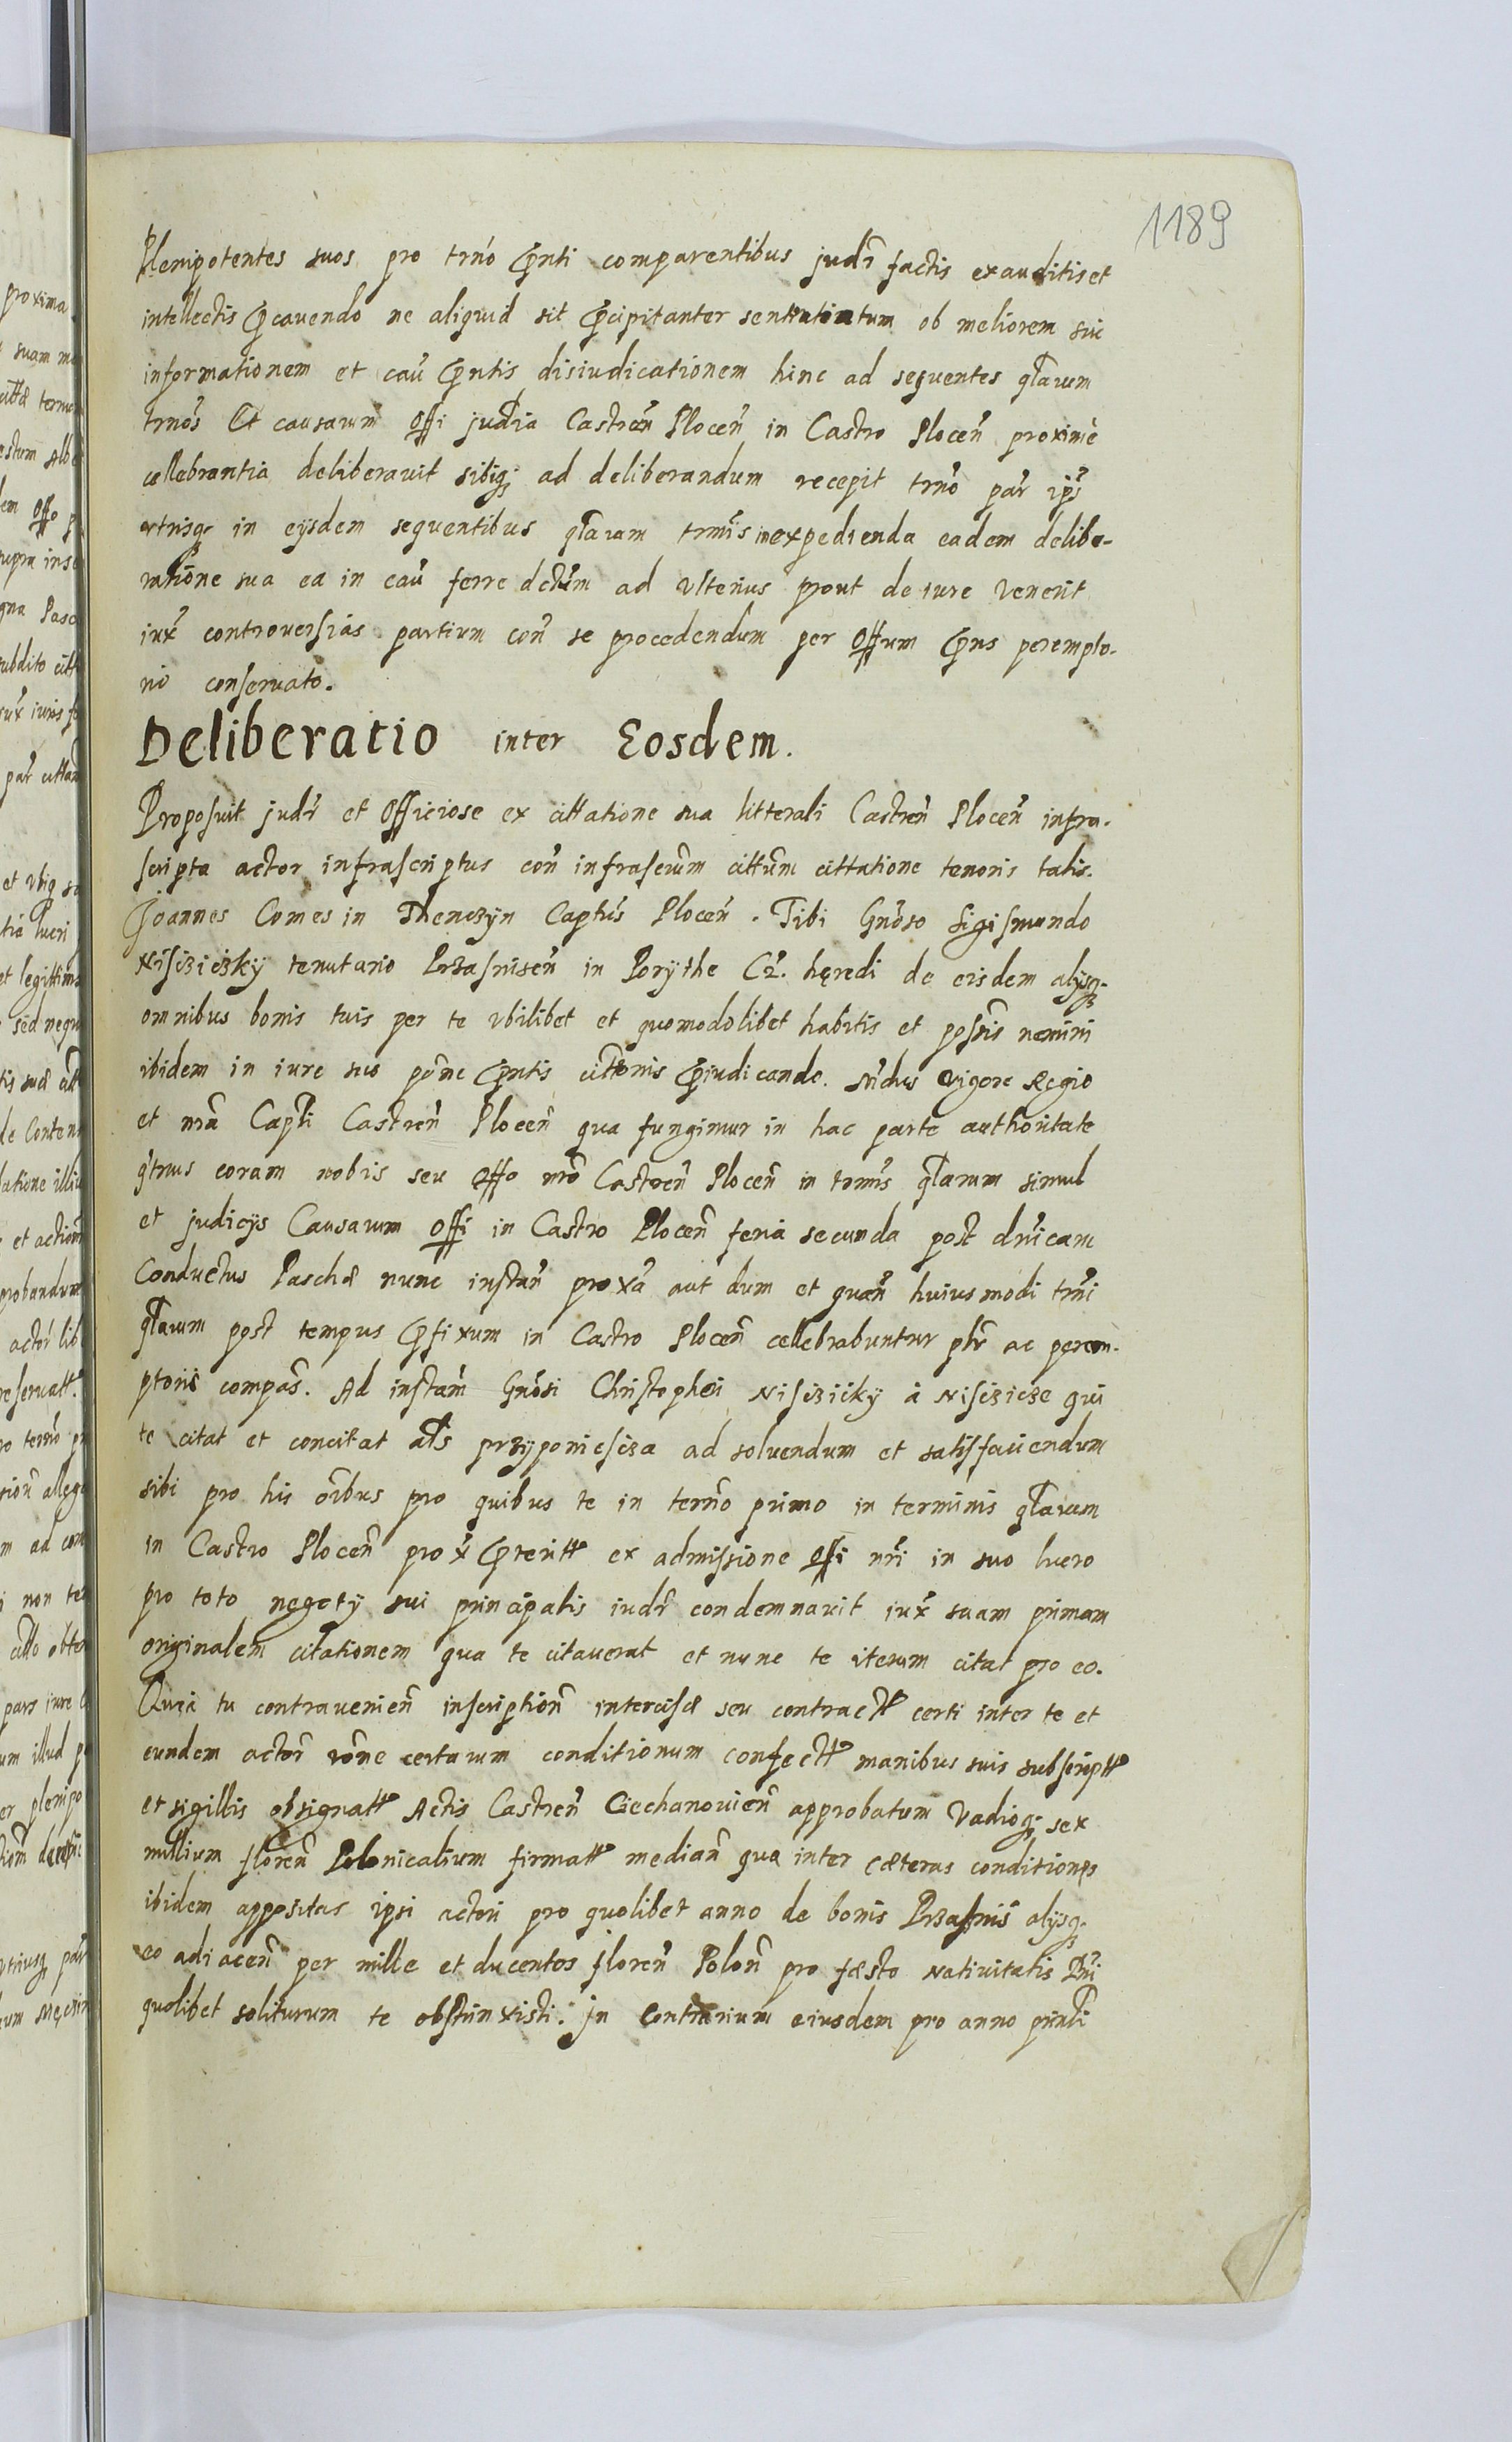 1189
Plenipotentes suos pro trño p̃nti comparentibus judr̃ factis exauditis et
intellectis p̃cauendo ne aliquid sit p̃cipitanter sententiatum ob meliorem sui
informationem et cau͂ p̃ntis disiudicationem hinc ad sequentes q̃larum
trño͂s et causarum Offi judicia Castren͂ Plocen͂ in Castro Plocen͂ proxime
cellebrantia deliberauit sibiq; ad deliberandum recepit trño par͂ ip͂s
vtrisq; in eijsdem sequentibus q̃larum trmi͂s in expedienda eadem delibe-
ratione sua ea in cau͂ ferre dctu͂m ad vlterius prout de iure venerit
iux͂ controuersias partium con͂ se procedendum per Offum p̃ns perempto-
rio conseruato.
Deliberatio inter Eosdem.
Proposuit judr̃ et Officiose ex cittatione sua litterali Castren͂ Plocen͂ infra-
scripta actor infrascriptus con͂ infrascrm͂ cittum͂ cittatione tenoris talis.
Joannes Comes in Thenczyn Captus͂ Plocen͂. Tibi Gno͂so Sigismundo
Nisczićzky tenutario Przasnisen͂ in Porythe Cz͂. hęredi de eisdem alijsq;
omnibus bonis tuis per te vbilibet et quomodolibet habitis et possi͂s nemini
ibidem in iure suo po͂ne p̃ntis citto͂nis p̃iudicando. Mndus͂ vigore Regio
et nra͂ Capti͂ Castren͂ Plocen͂ qua fungimur in hac parte authoritate
q͂tnus coram nobis seu Offo nro͂ Castren͂ Plocen͂ in trmi͂s q̃larum simul
et judicijs Causarum Offi in Castro Plocen͂ feria secunda post dni͂cam
Conductus Paschæ nunc instan͂ prox͂a aut dum et quan͂ huiusmodi trmi͂
q̃larum post tempus p̃fixum in Castro Plocen͂ cellebrabuntur ptr͂ ac perem-
ptorie compas͂. Ad instam͂ Gno͂si Christopheri Nisczićky à Nisczicze qui
te citat et concitat at͂s przyponiescza ad soluendum et satisfaciendum
sibi pro his o͂ibus pro quibus te in termo͂ primo in terminis q̃larum
in Castro Plocen͂ prox͂ p̃teritt͂ ex admissione Offi nri͂ in suo lucro
pro toto negoty sui principalis iudr͂ condemnauit iux͂ suam primam
originalem citationem qua te citauerat et nunc te iterum citat pro eo.
Quia tu contrauenien͂ inscription͂ intercisæ seu contractt͂ certi inter te et
eundem actor͂ ro͂ne certarum conditionum confectt͂ manibus suis subscriptt͂
et sigillis obsignatt͂ Actis Castren͂ Ciechanouien͂ approbatum Vadioq; sex
millium floren͂ Polonicalium firmatt͂ median͂ qua inter cæteras conditiones
ibidem appositas ipsi actori pro quolibet anno de bonis Przasnis͂ alijsq;
eo adiacen͂ per mille et ducentos floren͂ Polon͂ pro fæsto Natiuitatis Dni͂
quolibet soliturum te obstrinxisti. In contrarium eiusdem pro anno pńnti